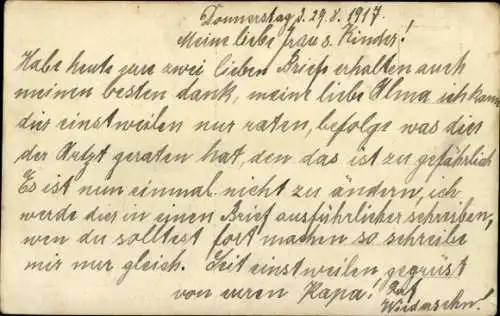 Donnerstag d. 29.8.1917.
Meine liebe frau s. Kinder!
Habe heute eure zwei lieben Briefe erhalten auch
meinen besten dank, meine liebe Alma ich kann
dir einstweilen nur raten, befolge was dir
der Artzt geraten hat, den das ist zu gefährlich
Es ist nun einmal nicht zu ändern, ich
werde dier in einen Brief ausführlicher schreiben,
wen du solltest fort machen so schreibe
mir nur gleich. Seit einstweilen gegrüst
von euren Papa! Auf
Wiedersehn!